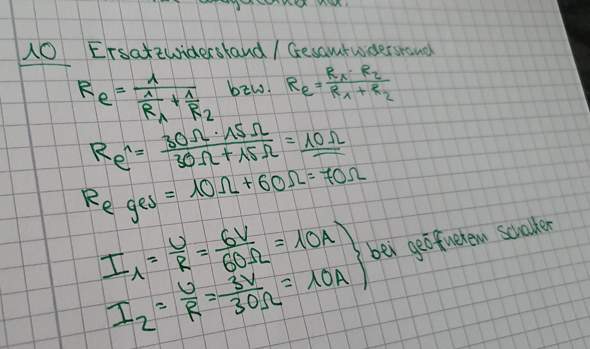 10 Ersatzwiderstand / Gesamtwiderstand
Re = 1 / (1/R1 + 1/R2) bzw. Re = R1 · R2 / R1 + R2
Re1 = 30Ω · 15Ω / 30Ω + 15Ω = 10Ω
Re ges = 10Ω + 60Ω = 70Ω
I1 = U/R = 6V/60Ω = 10A
I2 = U/R = 3V/30Ω = 10A } bei geöfnetem Schalter